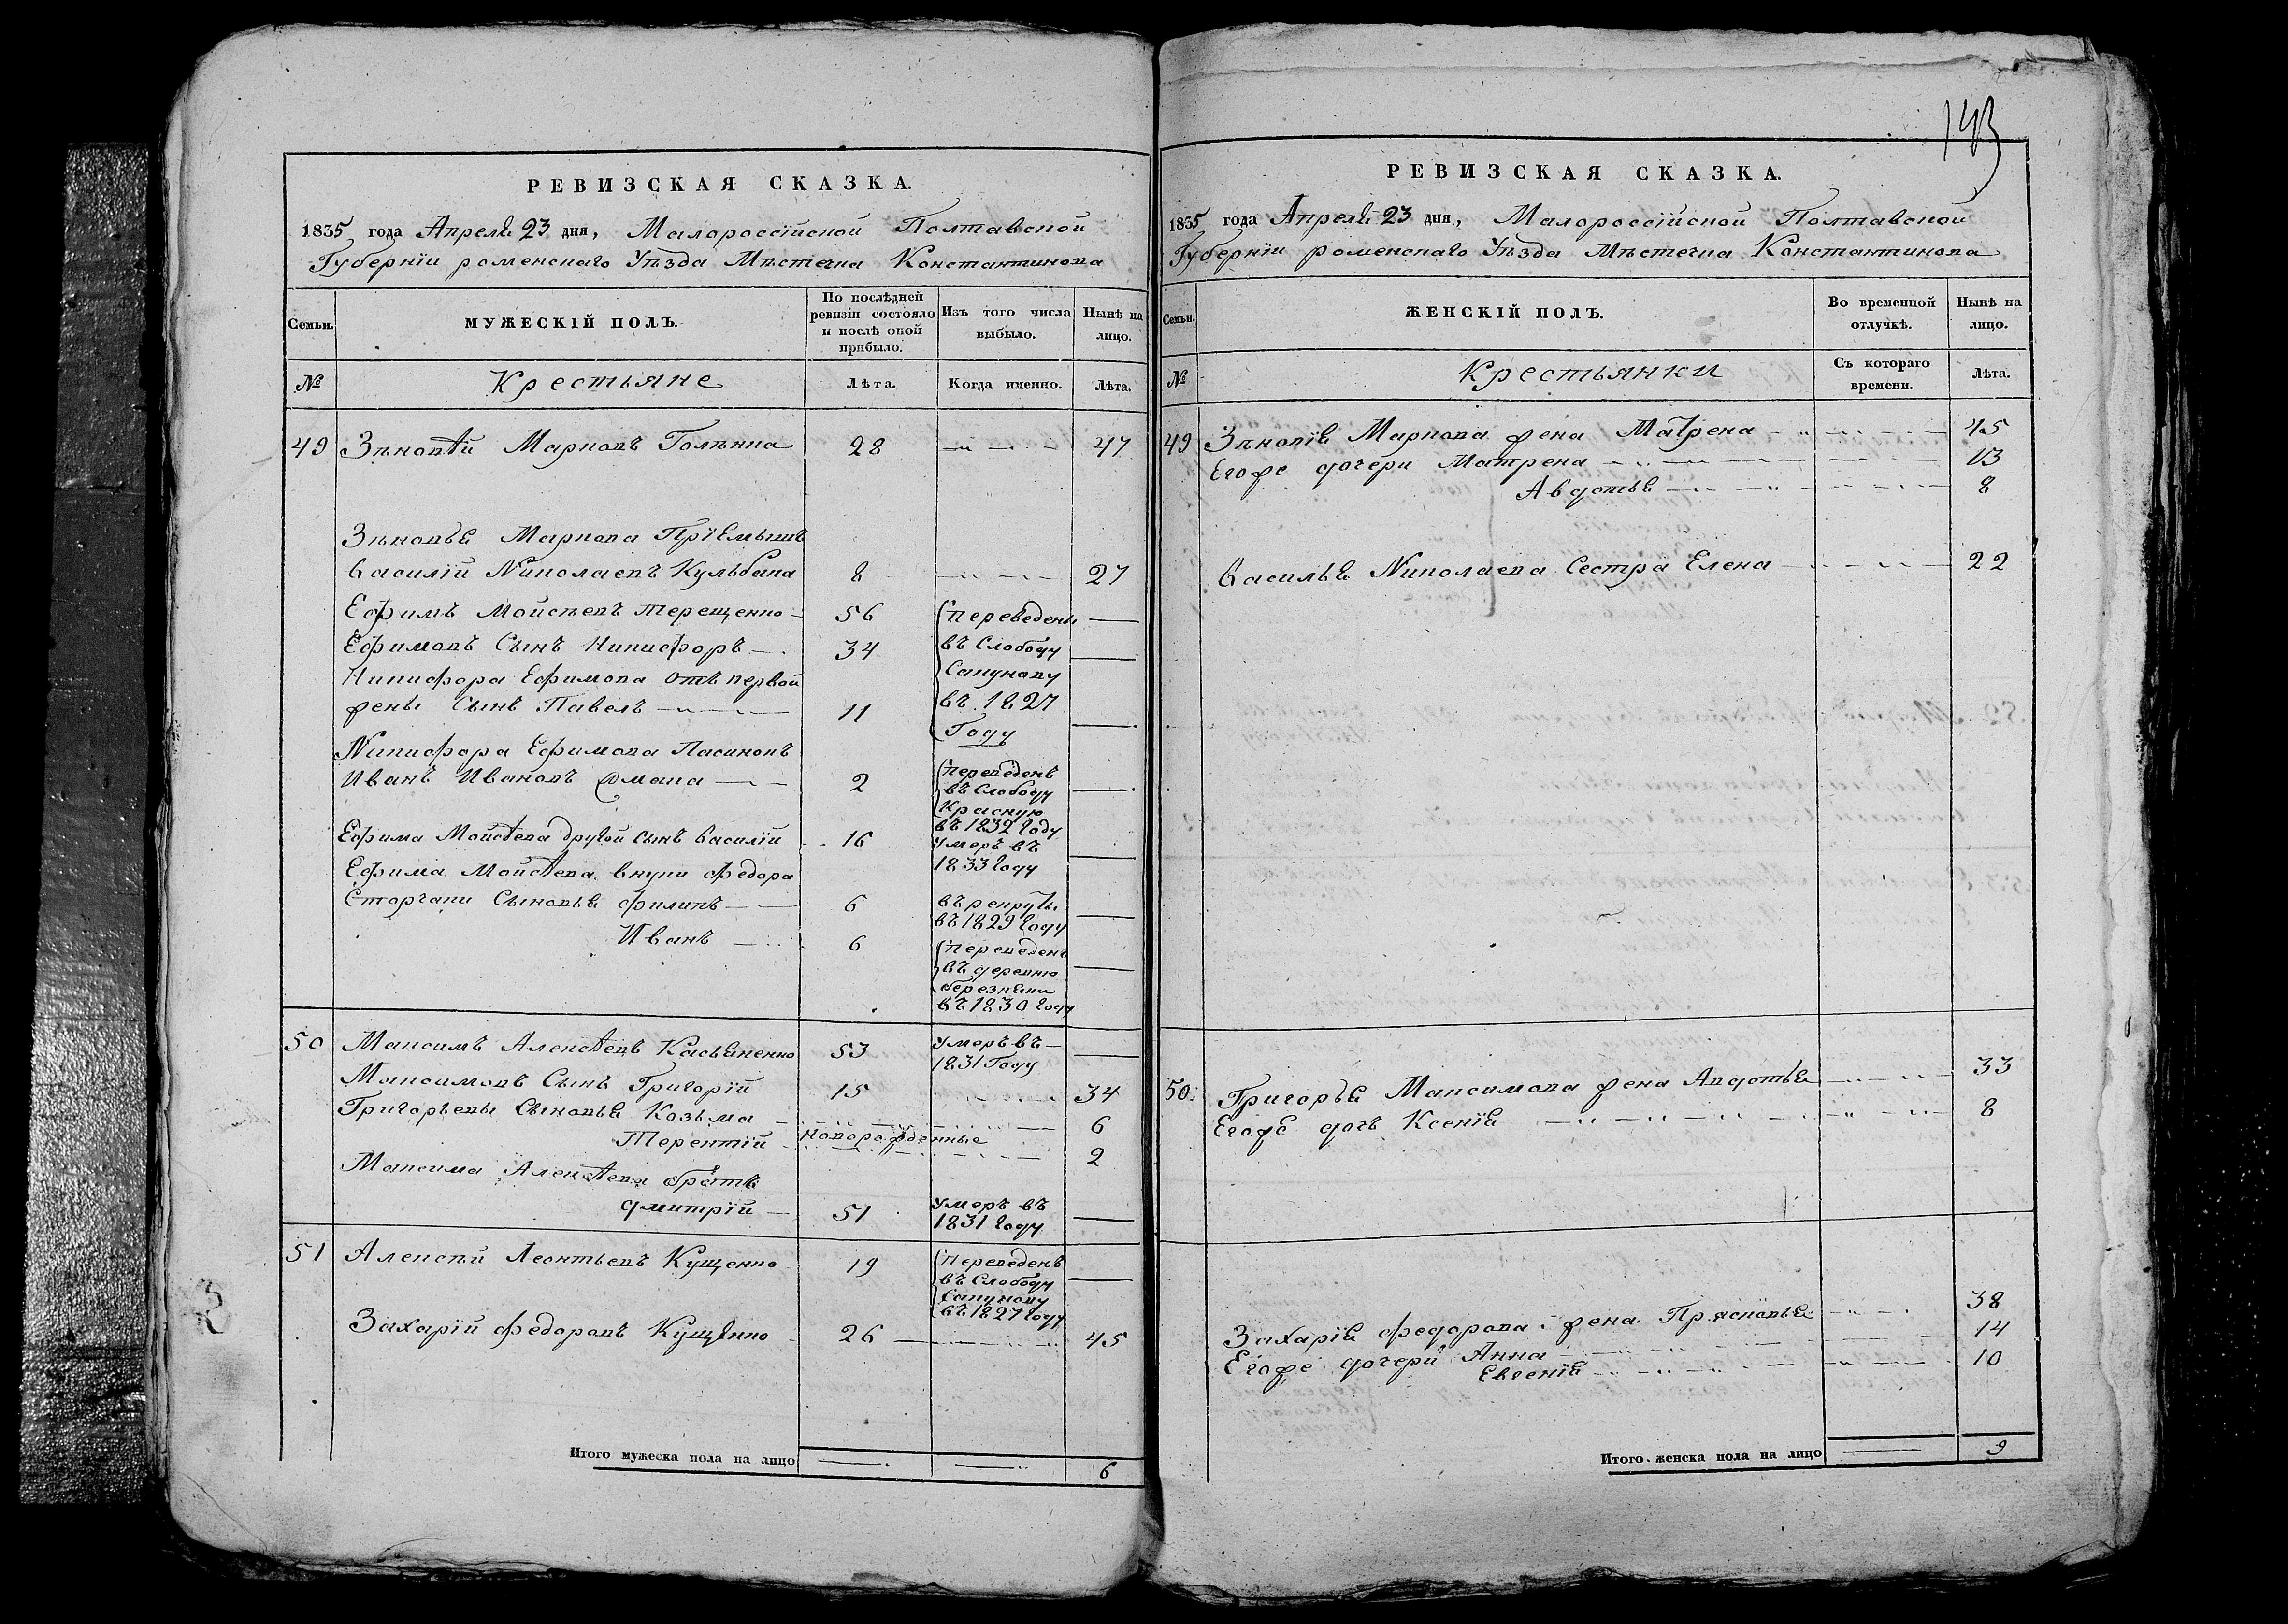 РЕВИЗСКАЯ СКАЗКА.
1835 года Апреля 23 дня, Малороссійской Полтавской
Губерніи роменскаго Уѣзда Мѣстечка Константинова
Семьи. МУЖЕСКІЙ ПОЛЪ. По послѣдней ревизіи состояло и послѣ оной прибыло. Изъ того числа выбыло. Нынѣ на лицо.
№ Крестьяне Лѣта. Когда именно. Лѣта.
49 Зѣновѣй Марковъ Голѣнка 28 47
Зѣновья Маркова Пріемышъ
Василій Николаевъ Кульбака 8 27
Ефимъ Мойсѣевъ Терещенко 56 Переведены
Ефимовъ Сынъ Никифоръ 34 въ Слободу
Никифора Ефимова отъ первой Сакунову
жены Сынъ Павелъ 11 въ 1827
Году
Никифора Ефимова Пасинокъ
Иванъ Ивановъ 2 Переведенъ
въ Слободу
Красную
въ 1832 Году
Ефима Мойсѣева другой сынъ Василій 16 Умеръ въ
1833 Году
Ефима Мойсѣева внуки Федора
Сыновья Филипъ 6 въ рекруты
въ 1829 Году
Иванъ 6 Переведенъ
въ деревню
въ 1830 Году
50 Максимъ Алексѣевъ Касьяненко 53 Умеръ въ
1831 Году
Максимовъ Сынъ Григорій 15 34
Григорьевы Сыновья Козьма 6
Терентій новорожденные 2
Максима Алексѣева братъ
Дмитрій 51 Умеръ въ
1831 Году
51 Алексѣй Леонтьевъ Кущенко 19 Переведенъ
въ Слободу
Сакунову
въ 1827 Году
Захарій Федоровъ Кущенко 26 45
Итого мужеска пола на лицо 6
143
РЕВИЗСКАЯ СКАЗКА.
1835 года Апреля 23 дня, Малороссійской Полтавской
Губерніи роменскаго Уѣзда Мѣстечка Константинова
Семьи. ЖЕНСКІЙ ПОЛЪ. Во временной отлучкѣ. Нынѣ на лицо.
№ Крестьянки Съ котораго времени. Лѣта.
49 Зѣновія Маркова жена Матрена 45
Егоже дочери Матрена 13
Авдотья 8
Василья Николаева Сестра Елена 22
50 Григорья Максимова жена Авдотья 33
Егоже дочь Ксенія 8
Захарія Федорова жена Прасковья 38
Егоже дочери Анна 14
Евгенія 10
Итого женска пола на лицо 9